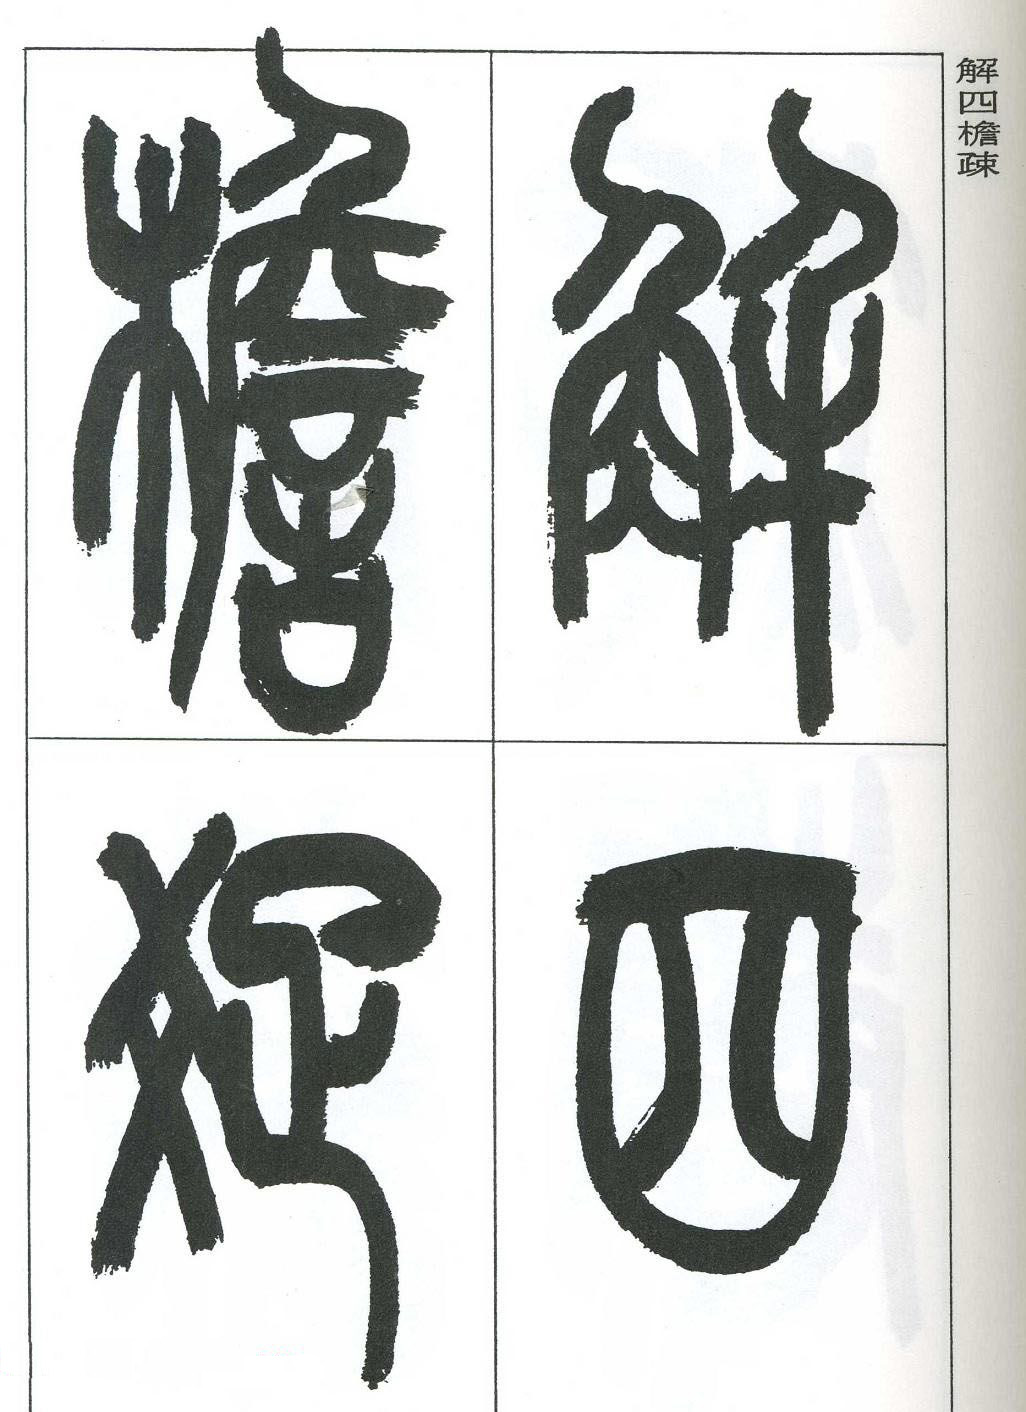 解四檐疎
解四
檐疎